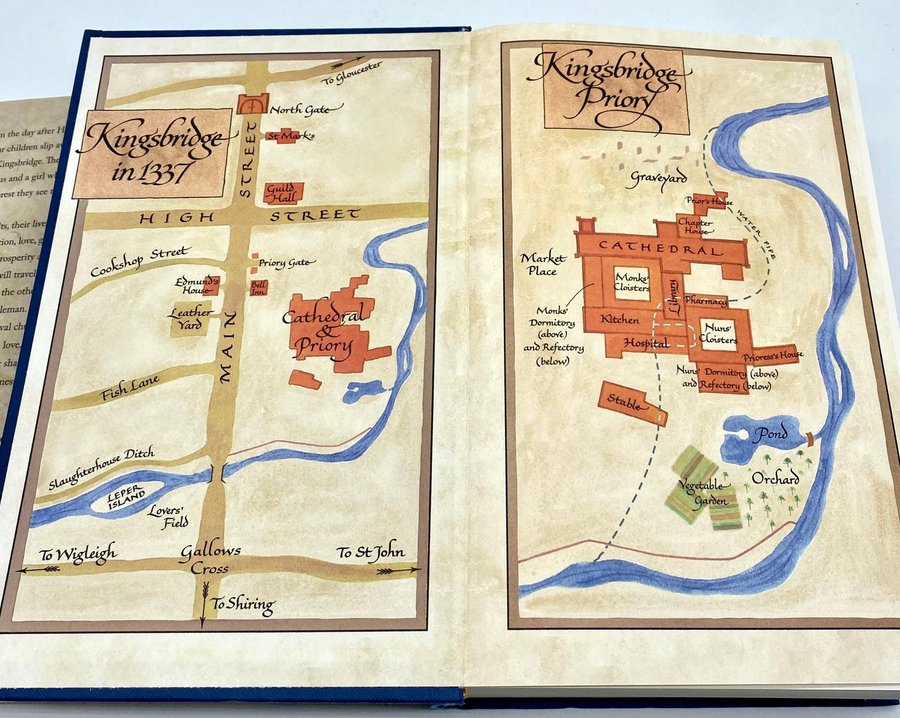 n the day after H
ur children slip aw
Kingsbridge. The
us and a girl wi
rest they see t
lts, their live
tion, love, g
prosperity a
will travel
the othe
leman.
val chu
love.
r sha
ness
Kingsbridge
in 1337
To Gloucester
North Gate
St Mark's
STREET
Guild
Hall
HIGH STREET
Cookshop Street
Priory Gate
Edmund's
House
Bell
Inn
Leather
Yard
Cathedral
&
Priory
MAIN
Fish Lane
Slaughterhouse Ditch
LEPER
ISLAND
Lovers'
Field
To Wigleigh
Gallows
Cross
To St John
To Shiring
Kingsbridge
Priory
Graveyard
Prior's House
WATER PIPE
Chapter
House
CATHEDRAL
Market
Place
Monks'
Cloisters
Library
Pharmacy
Monks'
Dormitory
(above)
and Refectory
(below)
Kitchen
Hospital
Nuns'
Cloisters
Prioress's House
Nuns' Dormitory (above)
and Refectory (below)
Stable
Pond
Vegetable
Garden
Orchard